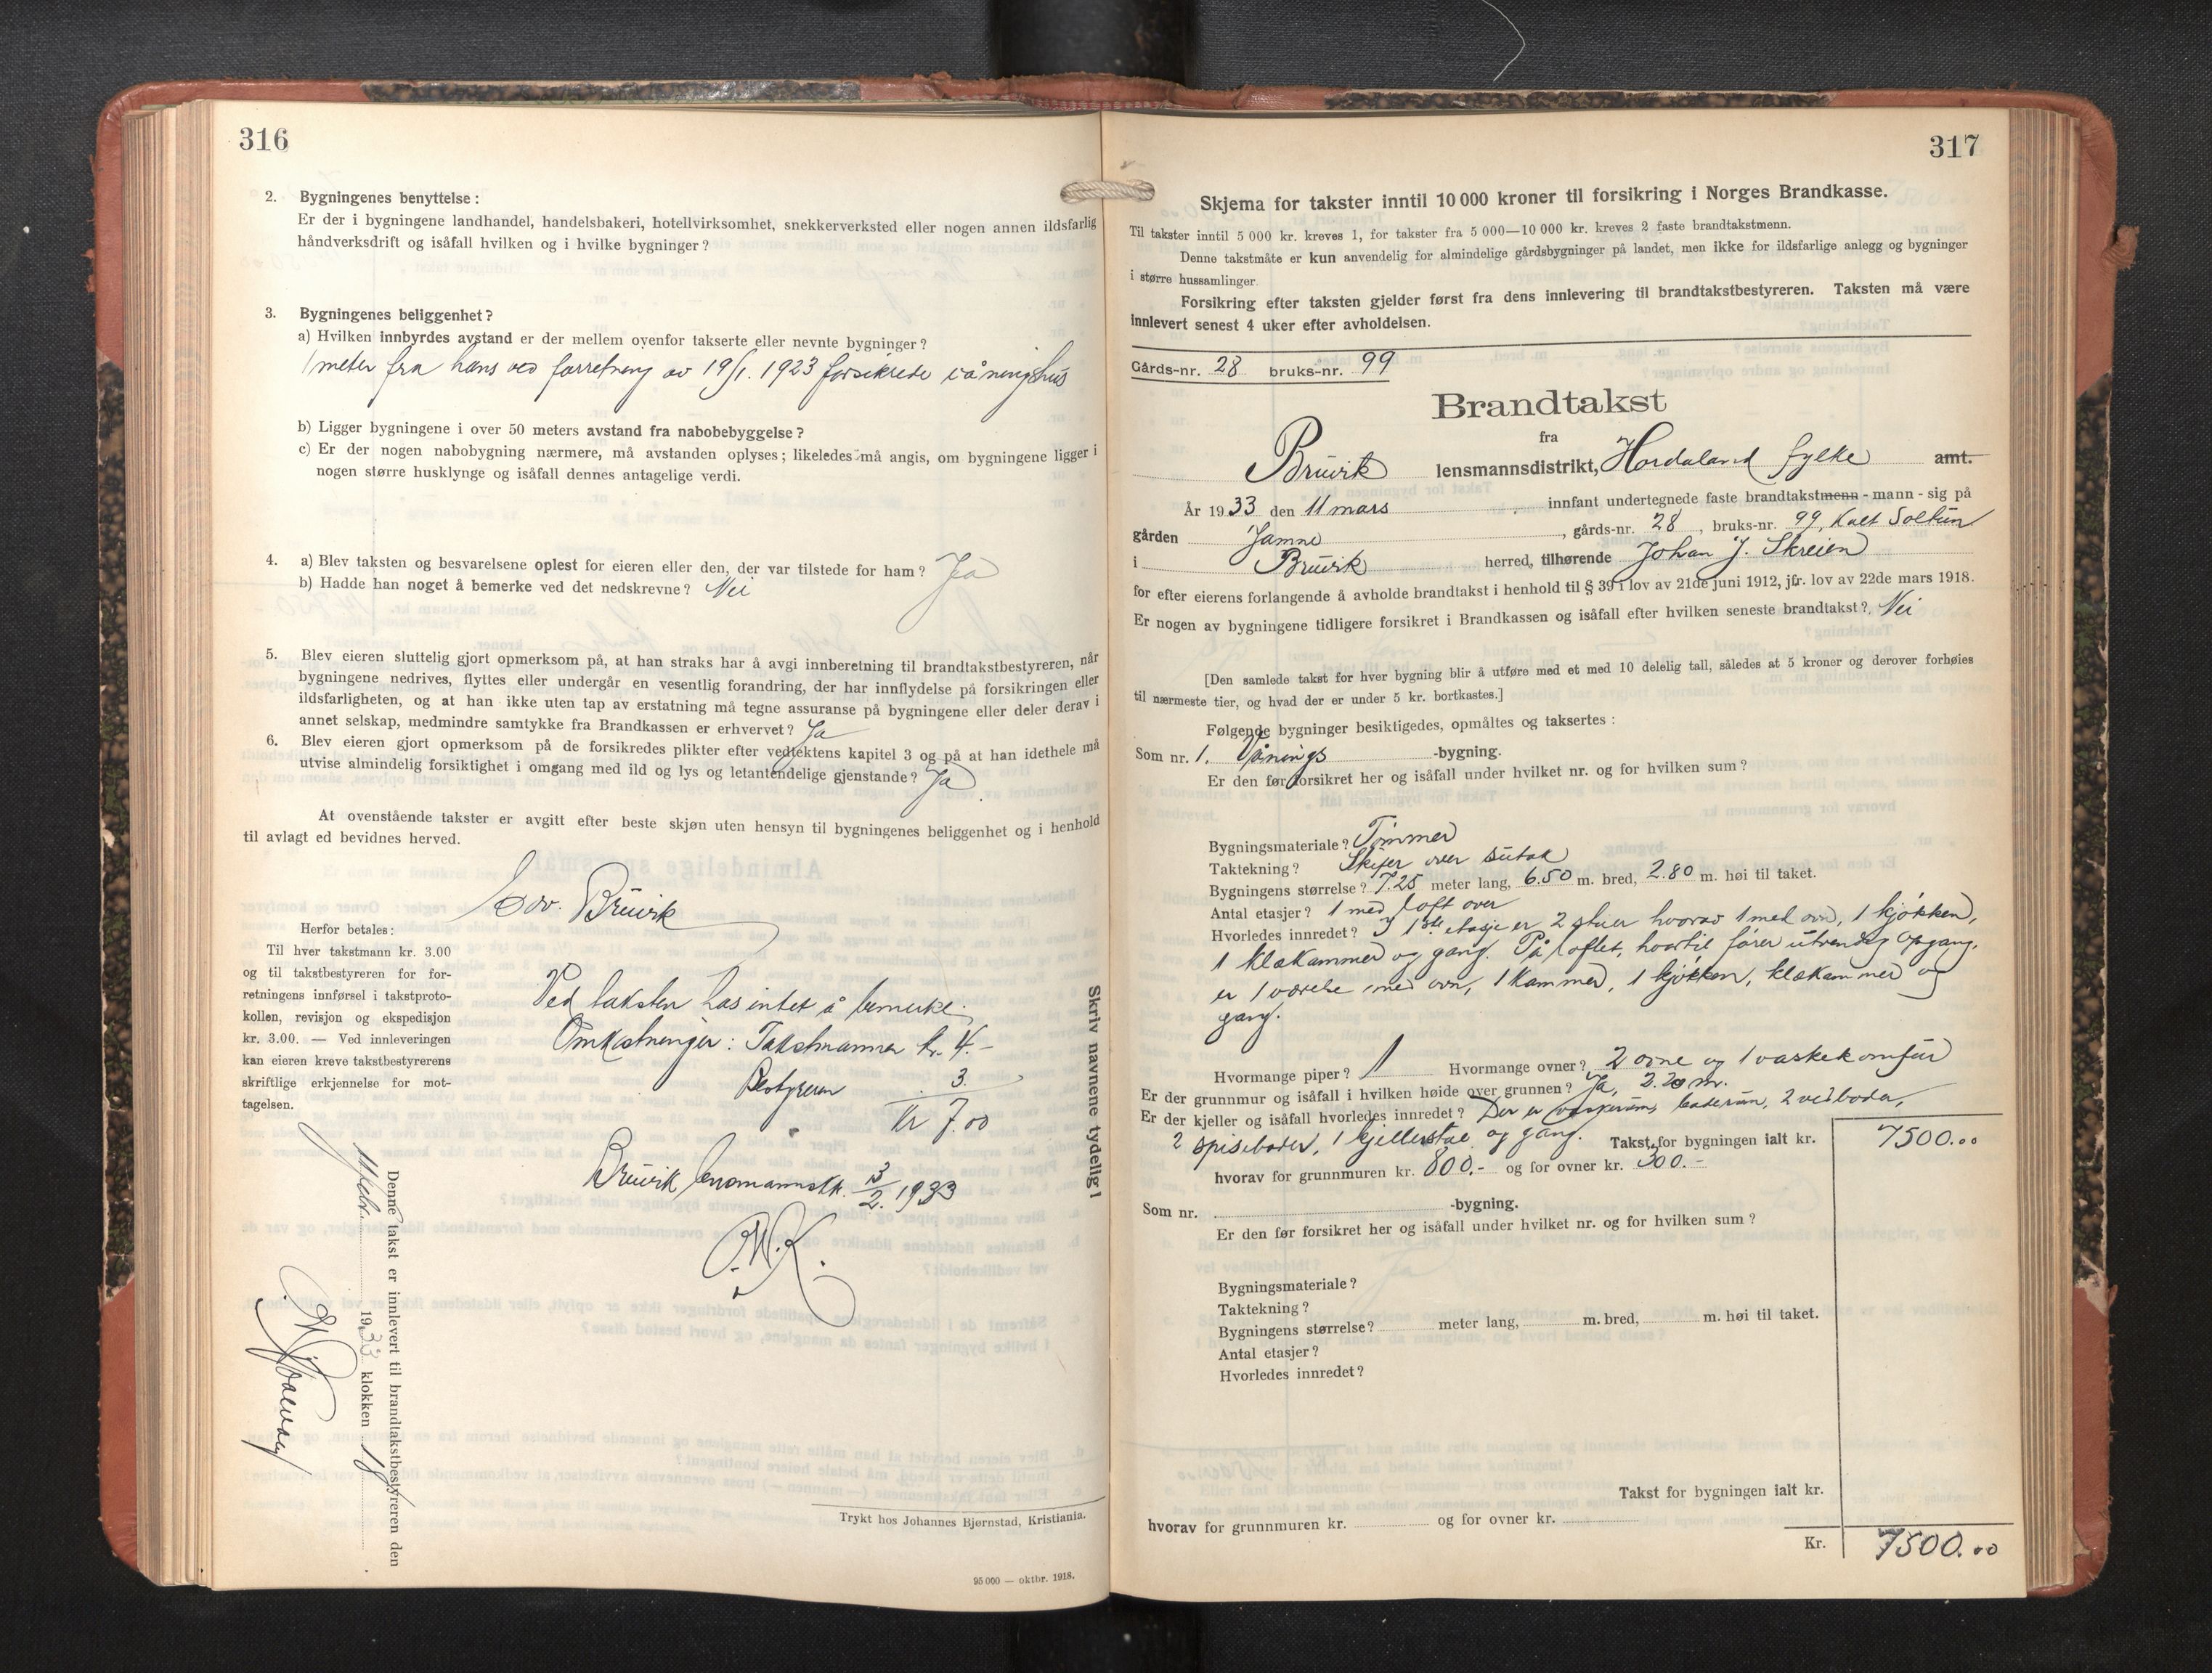 316
2. Bygningenes benyttelse:
Er der i bygningene landhandel, handelsbakeri, hotellvirksomhet, snekkerverksted eller nogen annen ildsfarlig
håndverksdrift og isåfall hvilken og i hvilke bygninger?
3. Bygningenes beliggenhet?
a) Hvilken innbyrdes avstand er der mellem ovenfor takserte eller nevnte bygninger?
1 meter fra hans ved forretning av 19/1. 1923 forsikrede våningshus
b) Ligger bygningene i over 50 meters avstand fra nabobebyggelse?
c) Er der nogen nabobygning nærmere, må avstanden oplyses; likeledes må angis, om bygningene ligger i
nogen større husklynge og isåfall dennes antagelige verdi.
4. a) Blev taksten og besvarelsene oplest for eieren eller den, der var tilstede for ham? Ja
b) Hadde han noget å bemerke ved det nedskrevne? Nei
5. Blev eieren sluttelig gjort opmerksom på, at han straks har å avgi innberetning til brandtakstbestyreren, når
bygningene nedrives, flyttes eller undergår en vesentlig forandring, der har innflydelse på forsikringen eller
ildsfarligheten, og at han ikke uten tap av erstatning må tegne assuranse på bygningene eller deler derav i
annet selskap, medmindre samtykke fra Brandkassen er erhvervet? Ja
6. Blev eieren gjort opmerksom på de forsikredes plikter efter vedtektens kapitel 3 og på at han idethele må
utvise almindelig forsiktighet i omgang med ild og lys og letantendelige gjenstande? Ja
At ovenstående takster er avgitt efter beste skjøn uten hensyn til bygningenes beliggenhet og i henhold
til avlagt ed bevidnes herved.
Edv. Bruvik
Herfor betales:
Til hver takstmann kr. 3.00
og til takstbestyreren for for-
retningens innførsel i takstproto-
kollen, revisjon og ekspedisjon
kr. 3.00. — Ved innleveringen
kan eieren kreve takstbestyrerens
skriftlige erkjennelse for mot-
tagelsen.
Ved taksten has intet å bemerke.
Omkostninger: Takstmannen kr. 4.-
Bestyreren 3.
Kr 7.00
Bruvik lensmannsktr. 3/2. 1933
Skriv navnene tydelig!
Denne takst er innlevert til brandtakstbestyreren den
1933 klokken 18
Trykt hos Johannes Bjørnstad, Kristiania.
95 000 — oktbr. 1918.
317
Skjema for takster inntil 10 000 kroner til forsikring i Norges Brandkasse.
Til takster inntil 5 000 kr. kreves 1, for takster fra 5 000—10 000 kr. kreves 2 faste brandtakstmenn.
Denne takstmåte er kun anvendelig for almindelige gårdsbygninger på landet, men ikke for ildsfarlige anlegg og bygninger
i større hussamlinger.
Forsikring efter taksten gjelder først fra dens innlevering til brandtakstbestyreren. Taksten må være
innlevert senest 4 uker efter avholdelsen.
Gårds-nr. 28 bruks-nr. 99
Brandtakst
fra
Bruvik lensmannsdistrikt, Hordaland fylke amt.
År 1933 den 11 mars innfant undertegnede faste brandtakstmenn - mann - sig på
gården Jamne, gårds-nr. 28, bruks-nr. 99, kalt Soltun
i Bruvik herred, tilhørende Johan J. Skreien
for efter eierens forlangende å avholde brandtakst i henhold til § 39 i lov av 21de juni 1912, jfr. lov av 22de mars 1918.
Er nogen av bygningene tidligere forsikret i Brandkassen og isåfall efter hvilken seneste brandtakst? Nei
[Den samlede takst for hver bygning blir å utføre med et med 10 delelig tall, således at 5 kroner og derover forhøies
til nærmeste tier, og hvad der er under 5 kr. bortkastes.]
Følgende bygninger besiktigedes, opmåltes og taksertes:
Som nr. 1. Vånings -bygning.
Er den før forsikret her og isåfall under hvilket nr. og for hvilken sum?
Bygningsmateriale? Tømmer
Taktekning? Skifer over sutak
Bygningens størrelse? 7.25 meter lang, 6.50 m. bred, 2.80 m. høi til taket.
Antal etasjer? 1 med loft over
Hvorledes innredet? I 1ste etasje er 2 stuer hvorav 1 med ovn, 1 kjøkken,
1 klækammer og gang. På loftet, hvortil fører utvendig opgang,
er 1 værelse med ovn, 1 kammer, 1 kjøkken, klækammer og
gang.
Hvormange piper? 1 Hvormange ovner? 2 ovne og 1 vaskekomfur
Er der grunnmur og isåfall i hvilken høide over grunnen? Ja, 2.20 m.
Er der kjeller og isåfall hvorledes innredet? Der er vaskerum, baderum, 2 vedboder,
2 spiseboder, 1 kjellerstue og gang. Takst for bygningen ialt kr. 7500.00
hvorav for grunnmuren kr. 800.- og for ovner kr. 300.-
Som nr. -bygning.
Er den før forsikret her og isåfall under hvilket nr. og for hvilken sum?
Bygningsmateriale?
Taktekning?
Bygningens størrelse? meter lang, m. bred, m. høi til taket.
Antal etasjer?
Hvorledes innredet?
Takst for bygningen ialt kr.
hvorav for grunnmuren kr. og for ovner kr.
Kr. 7500.00